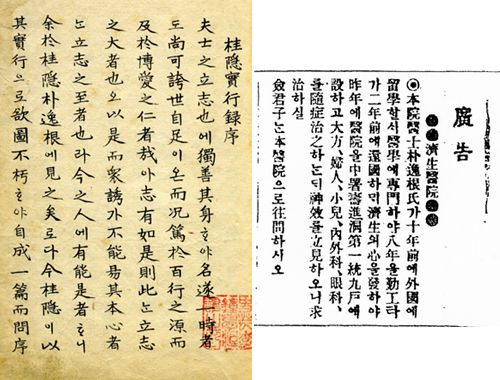 桂隱實行錄序
夫士之立志也에獨善其身ᄒᆞ야名遂一時者
도尚可誇世自足이온而况篤於百行之源而
及於博愛之仁者哉아志有如是則此ᄂᆞᆫ立志
之大者也오以是而衆誘가不能易其本心者
ᄂᆞᆫ立志之至者也라今之人에有能是者ᄒᆞ니
余於桂隱朴逸根에見之矣로다今桂隱이以
其實行으로欲圖不朽ᄒᆞ야自成一篇而問序
廣告
濟生醫院
◉本院醫士朴逸根氏가十年前에外國에
留學ᄒᆞᆯᄉᆡ醫學에專門ᄒᆞ야八年을勤工타
가二年前에還國ᄒᆞ미濟生의心을發ᄒᆞ야
昨年에醫院을中署壽進洞第一統九戶에
設ᄒᆞ고大方、婦人、小兒、內外科、眼科、
를隨症治之ᄒᆞᄂᆞᆫᄃᆡ神效를立見ᄒᆞ오니求
治ᄒᆞ실
僉君子ᄂᆞᆫ本醫院으로往問ᄒᆞ시오